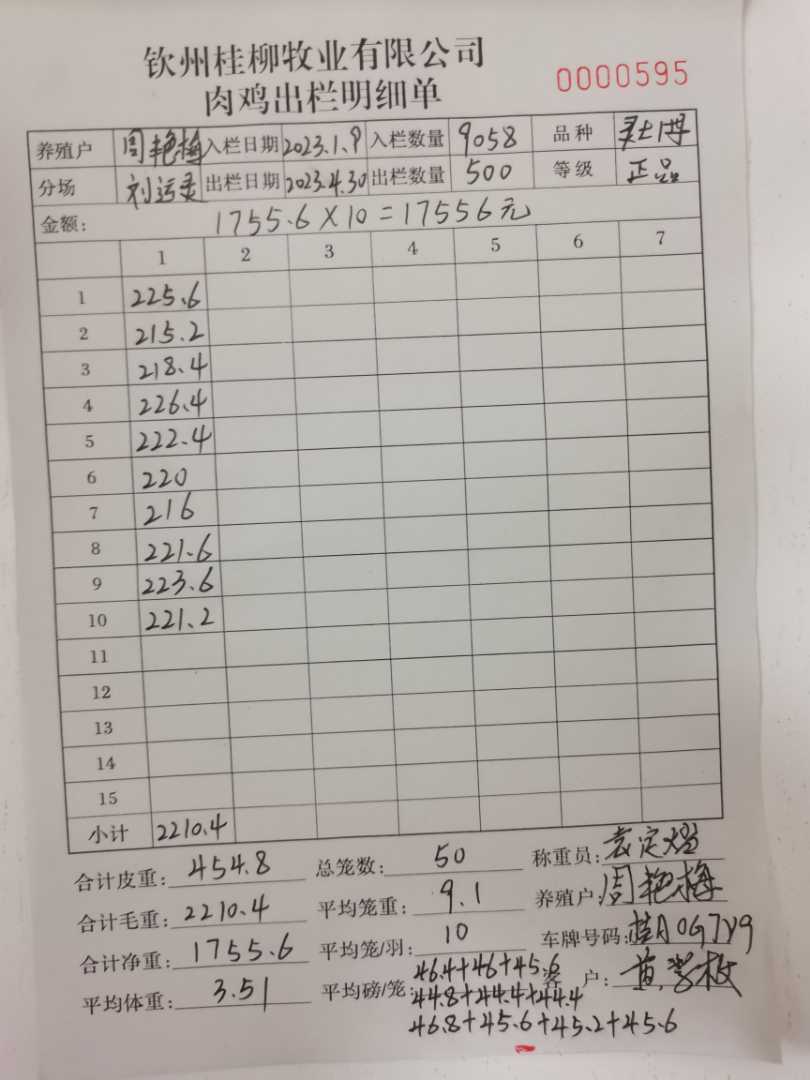 钦州桂柳牧业有限公司
0000595
肉鸡出栏明细单
养殖户 周艳梅 入栏日期 2023.1.9 入栏数量 9058 品种
分场 刘运灵 出栏日期 2023.4.30 出栏数量 500 等级 正品
金额: 1755.6×10=17556元
1 2 3 4 5 6 7
1 225.6
2 215.2
3 218.4
4 226.4
5 222.4
6 220
7 216
8 221.6
9 223.6
10 221.2
11
12
13
14
15
小计 2210.4
合计皮重: 454.8 总笼数: 50 称重员: 袁定
合计毛重: 2210.4 平均笼重: 9.1 养殖户: 周艳梅
合计净重: 1755.6 平均笼/羽: 10 车牌号码:
平均体重: 3.51 平均磅/笼: 46.4+46+45.6 客户: 黄
44.8+44.4+44.4
46.8+45.6+45.2+45.6